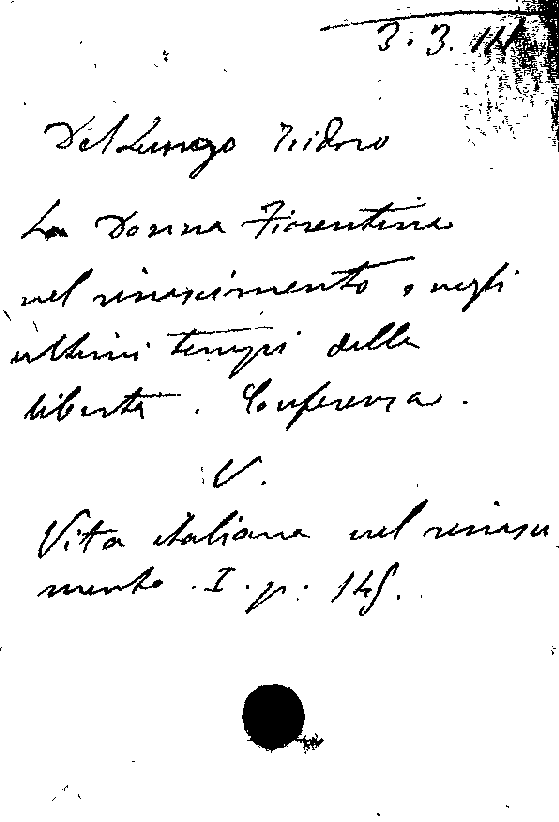 3. 3. 14
Del Lungo Isidoro
La Donna Fiorentina
nel rinascimento e negli
ultimi tempi della
libertà. Conferenza.
V.
Vita italiana nel rinasci
mento. I. p. 145.